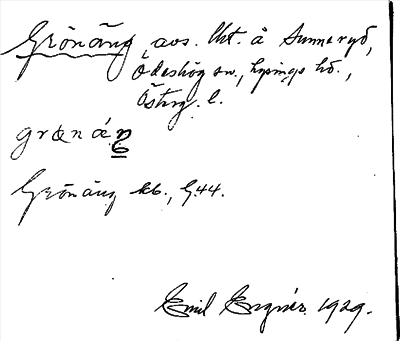 Grönäng, avs. lht. å Sunneryd,
Ödeshög sn., Lysings hd.,
Östg. l.
grønáŋ
Grönäng kb., G.44.
Emil 1929.